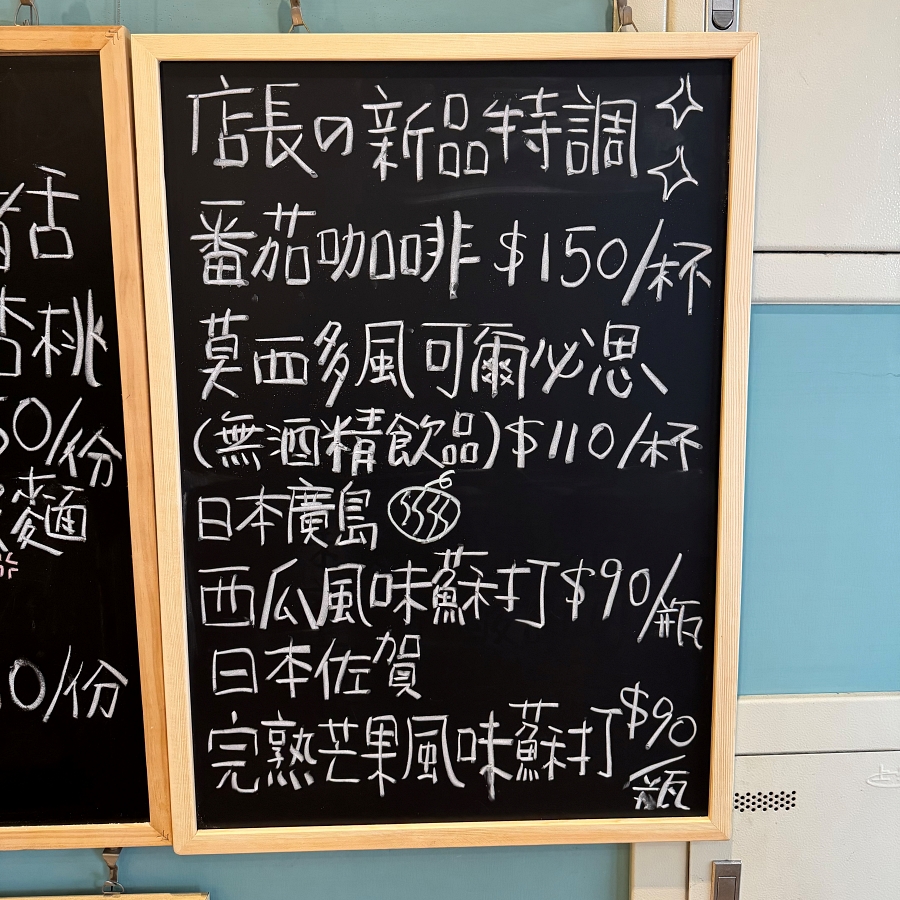 店長の新品特調
番茄咖啡 $150/杯
莫西多風可爾必思
(無酒精飲品)$110/杯
日本廣島
西瓜風味蘇打$90/瓶
日本佐賀
完熟芒果風味蘇打$90/瓶
活
杏桃
50/份
麵
10/份